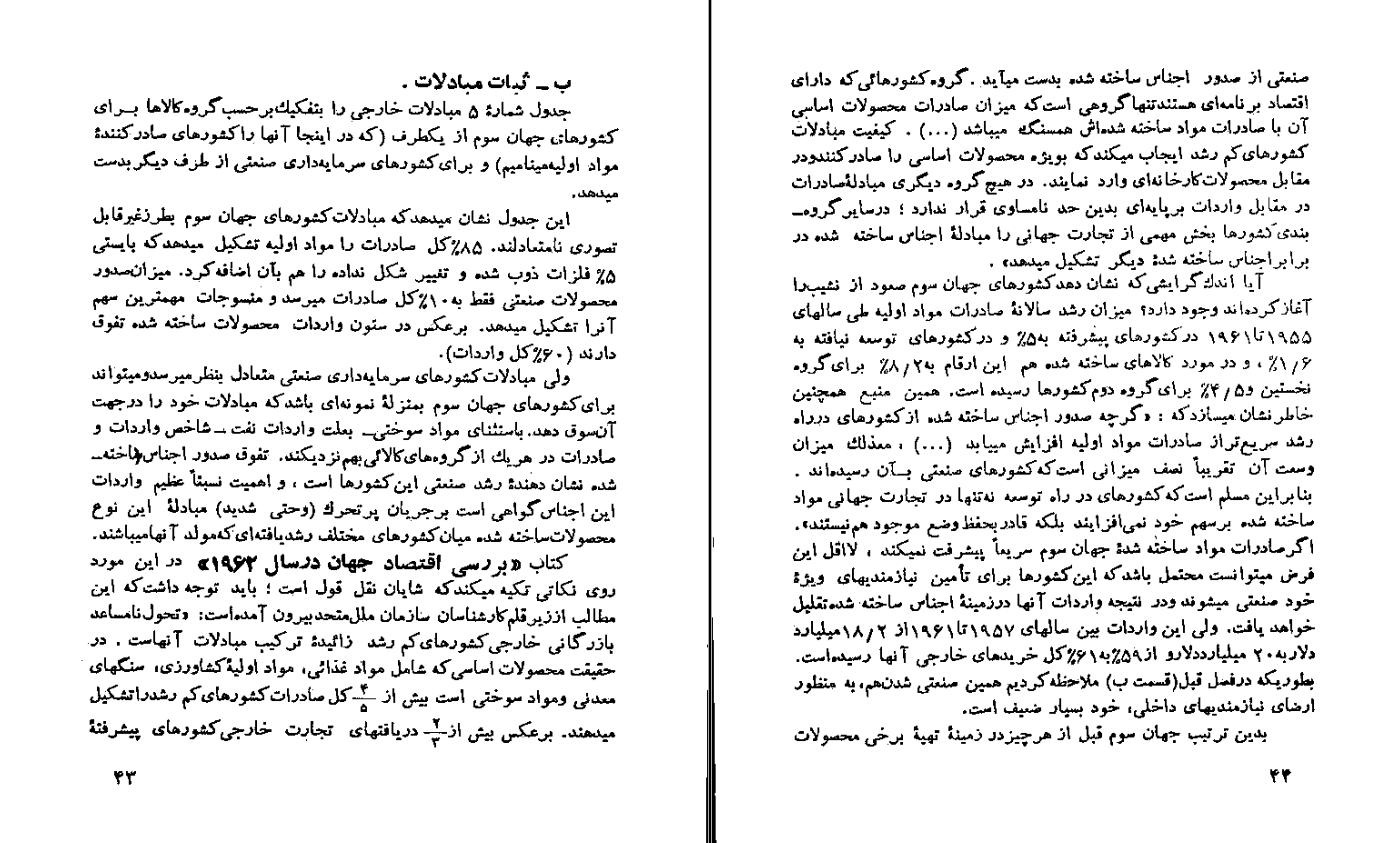 ب ـ ثبات مبادلات .
جدول شمارهٔ ۵ مبادلات خارجی را بتفکیك برحسب گروه کالاها برای
کشورهای جهان سوم از یکطرف (که در اینجا آنها را کشورهای صادر کنندهٔ
مواد اولیه مینامیم) و برای کشورهای سرمایه‌داری صنعتی از طرف دیگر بدست
میدهد.
این جدول نشان میدهد که مبادلات کشورهای جهان سوم بطرز غیرقابل
تصوری نامتعادلند. ۸۵٪ کل صادرات را مواد اولیه تشکیل میدهد که بایستی
۵٪ فلزات ذوب شده و تغییر شکل نداده را هم بآن اضافه کرد. میزان صدور
محصولات صنعتی فقط به ۱۰٪ کل صادرات میرسد و منسوجات مهمترین سهم
آنرا تشکیل میدهد. برعکس در ستون واردات محصولات ساخته شده تفوق
دارند (۶۰٪ کل واردات).
ولی مبادلات کشورهای سرمایه‌داری صنعتی متعادل بنظر میرسد و میتواند
برای کشورهای جهان سوم بمنزلهٔ نمونه‌ای باشد که مبادلات خود را در جهت
آن سوق دهد. باستثنای مواد سوختی ـ بعلت واردات نفت ـ شاخص واردات و
صادرات در هریك از گروه‌های کالائی بهم نزدیکند. تفوق صدور اجناس ساخته ـ
شده نشان دهندهٔ رشد صنعتی این کشورها است ، و اهمیت نسبتاً عظیم واردات
این اجناس گواهی است بر جریان پر تحرك (وحتی شدید) مبادلهٔ این نوع
محصولات ساخته شده میان کشورهای مختلف رشد یافته‌ای که مولد آنها میباشند.
کتاب «بررسی اقتصاد جهان در سال ۱۹۶۲» در این مورد
روی نکاتی تکیه میکند که شایان نقل قول است ؛ باید توجه داشت که این
مطالب از زیر قلم کارشناسان سازمان ملل متحد بیرون آمده است: «تحول نامساعد
بازرگانی خارجی کشورهای کم رشد زائیدهٔ ترکیب مبادلات آنهاست . در
حقیقت محصولات اساسی که شامل مواد غذائی، مواد اولیهٔ کشاورزی، سنگهای
معدنی و مواد سوختی است بیش از ۴/۵ کل صادرات کشورهای کم رشد را تشکیل
میدهند. برعکس بیش از ۲/۳ دریافتهای تجارت خارجی کشورهای پیشرفتهٔ
۴۳
صنعتی از صدور اجناس ساخته شده بدست میآید . گروه کشورهائی که دارای
اقتصاد برنامه‌ای هستند تنها گروهی است که میزان صادرات محصولات اساسی
آن با صادرات مواد ساخته شده‌اش همسنگ میباشد (...) . کیفیت مبادلات
کشورهای کم رشد ایجاب میکند که بویژه محصولات اساسی را صادر کنند و در
مقابل محصولات کارخانه‌ای وارد نمایند. در هیچ گروه دیگری مبادلهٔ صادرات
در مقابل واردات بر پایه‌ای بدین حد نامساوی قرار ندارد ؛ در سایر گروه ـ
بندی کشورها بخش مهمی از تجارت جهانی را مبادلهٔ اجناس ساخته شده در
برابر اجناس ساخته شدهٔ دیگر تشکیل میدهد» .
آیا اندك گرایشی که نشان دهد کشورهای جهان سوم صعود از نشیب را
آغاز کرده‌اند وجود دارد؟ میزان رشد سالانهٔ صادرات مواد اولیه طی سالهای
۱۹۵۵ تا ۱۹۶۱ در کشورهای پیشرفته به ۵٪ و در کشورهای توسعه نیافته به
۱/۶٪ ، و در مورد کالاهای ساخته شده هم این ارقام به ۸/۲٪ برای گروه
نخستین و ۴/۵٪ برای گروه دوم کشورها رسیده است. همین منبع همچنین
خاطر نشان میسازد که : «گرچه صدور اجناس ساخته شده از کشورهای در راه
رشد سریع‌تر از صادرات مواد اولیه افزایش مییابد (...) ، معذلك میزان
وسعت آن تقریباً نصف میزانی است که کشورهای صنعتی بـآن رسیده‌اند .
بنابراین مسلم است که کشورهای در راه توسعه نه‌تنها در تجارت جهانی مواد
ساخته شده بر سهم خود نمی‌افزایند بلکه قادر بحفظ وضع موجود هم نیستند».
اگر صادرات مواد ساخته شدهٔ جهان سوم سریعاً پیشرفت نمیکند ، لااقل این
فرض میتوانست محتمل باشد که این کشورها برای تأمین نیازمندیهای ویژهٔ
خود صنعتی میشوند و در نتیجه واردات آنها در زمینهٔ اجناس ساخته شده تقلیل
خواهد یافت. ولی این واردات بین سالهای ۱۹۵۷ تا ۱۹۶۱ از ۱۸/۲ میلیارد
دلار به ۲۰ میلیارد دلار و از ۵۹٪ به ۶۱٪ کل خریدهای خارجی آنها رسیده است.
بطوریکه در فصل قبل (قسمت ب) ملاحظه کردیم همین صنعتی شدن هم، به منظور
ارضای نیازمندیهای داخلی، خود بسیار ضعیف است.
بدین ترتیب جهان سوم قبل از هر چیز در زمینهٔ تهیهٔ برخی محصولات
۴۴